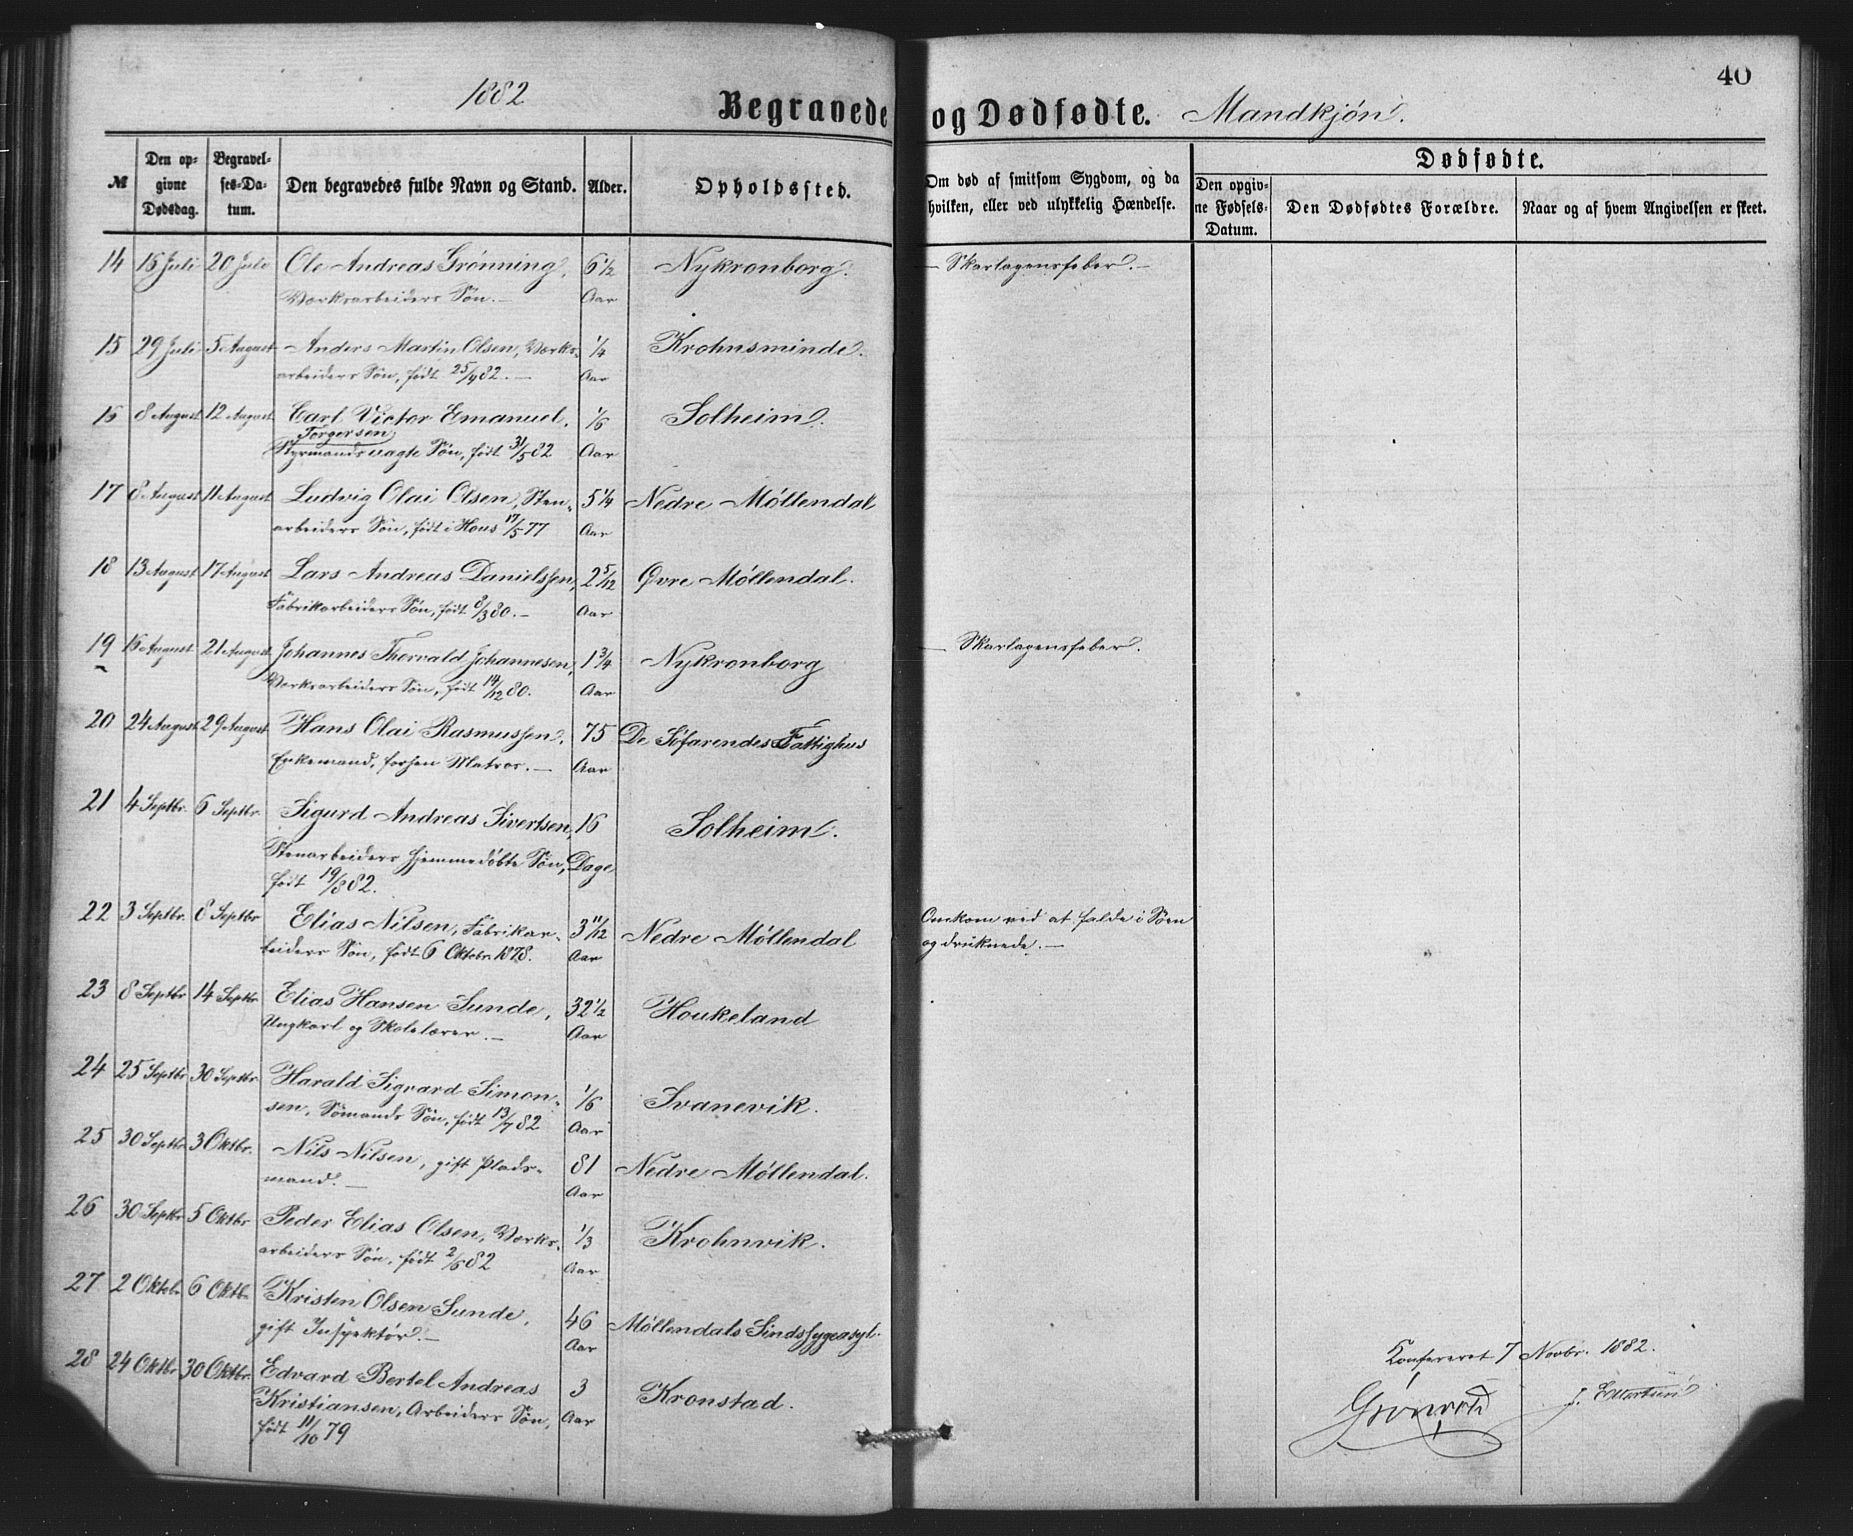 1882
Begravede og Dødfødte. Mandkjøn.
40
№
Den opgivne Dødsdag.
Begravelses-Datum.
Den begravedes fulde Navn og Stand.
Alder.
Opholdssted.
Om død af smitsom Sygdom, og da hvilken, eller ved ulykkelig Hændelse.
Dødfødte.
Den opgivne Fødsels-Datum.
Den Dødfødtes Forældre.
Naar og af hvem Angivelsen er skeet.
14 15 Juli 20 Juli Ole Andreas Grönning, 6 1/2 Nykronborg. — Skarlagensfeber. —
Værksarbeiders Søn. — Aar
15 29 Juli 5 August Anders Martin Olsen, Værks- 1/4 Krohnsminde.
arbeiders Søn, født 25/4 82. — Aar
16 8 August 12 August Carl Victor Emanuel, 1/6 Solheim.
Torgersen
Styrmandsvagts Søn, født 31/5 82 Aar
17 8 August 11 August Ludvig Olai Olsen, Sten- 5 1/4 Nedre Möllendal
arbeiders Søn, født i Hous 17/5 77 Aar
18 13 August 17 August Lars Andreas Danielssen, 2 5/12 Øvre Möllendal.
Fabrikarbeiders Søn, født 8/3 80. — Aar
19 16 August 21 August Johannes Thorvald Johannesen, 1 3/4 Nykronborg — Skarlagensfeber.
Værksarbeiders Søn, født 14/12 80. Aar
20 24 August 29 August Hans Olai Rasmussen, 75 De Söfarendes Fattighus
Enkemand, forhen Matros. — Aar
21 4 Septbr. 6 Septbr. Sigurd Andreas Sivertsen, 16 Solheim.
Stenarbeiders hjemmedöbte Søn, Dage
født 19/8 82.
22 3 Septbr. 8 Septbr Elias Nilsen, Fabrikar- 3 11/12 Nedre Möllendal Omkom ved at falde i Søen
beiders Søn, født 6 Oktobr 1878. Aar og druknede. —
23 8 Septbr 14 Septbr Elias Hansen Sunde, 32 1/2 Houkeland
Ungkarl og Skolelærer. — Aar
24 25 Septbr 30 Septbr Harald Sigvard Simon- 1/6 Svanevik.
sen, Sømands Søn, født 13/7 82 Aar
25 30 Septbr 3 Oktbr. Nils Nilsen, gift Plads- 81 Nedre Möllendal.
mand. — Aar
26 30 Septbr 5 Oktbr Peder Elias Olsen, Værks- 1/3 Krohnvik.
arbeiders Søn, født 2/6 82 Aar
27 2 Oktobr 6 Oktbr. Kristen Olsen Sunde, 46 Möllendals Sindssygeasyl.
gift Inspektör. — Aar
28 24 Oktbr 30 Oktbr. Edvard Bertel Andreas 3 Kronstad.
Kristiansen, Arbeiders Søn, Aar
født 11/10 79
Konfereret 7 Novbr. 1882.
Grönvold